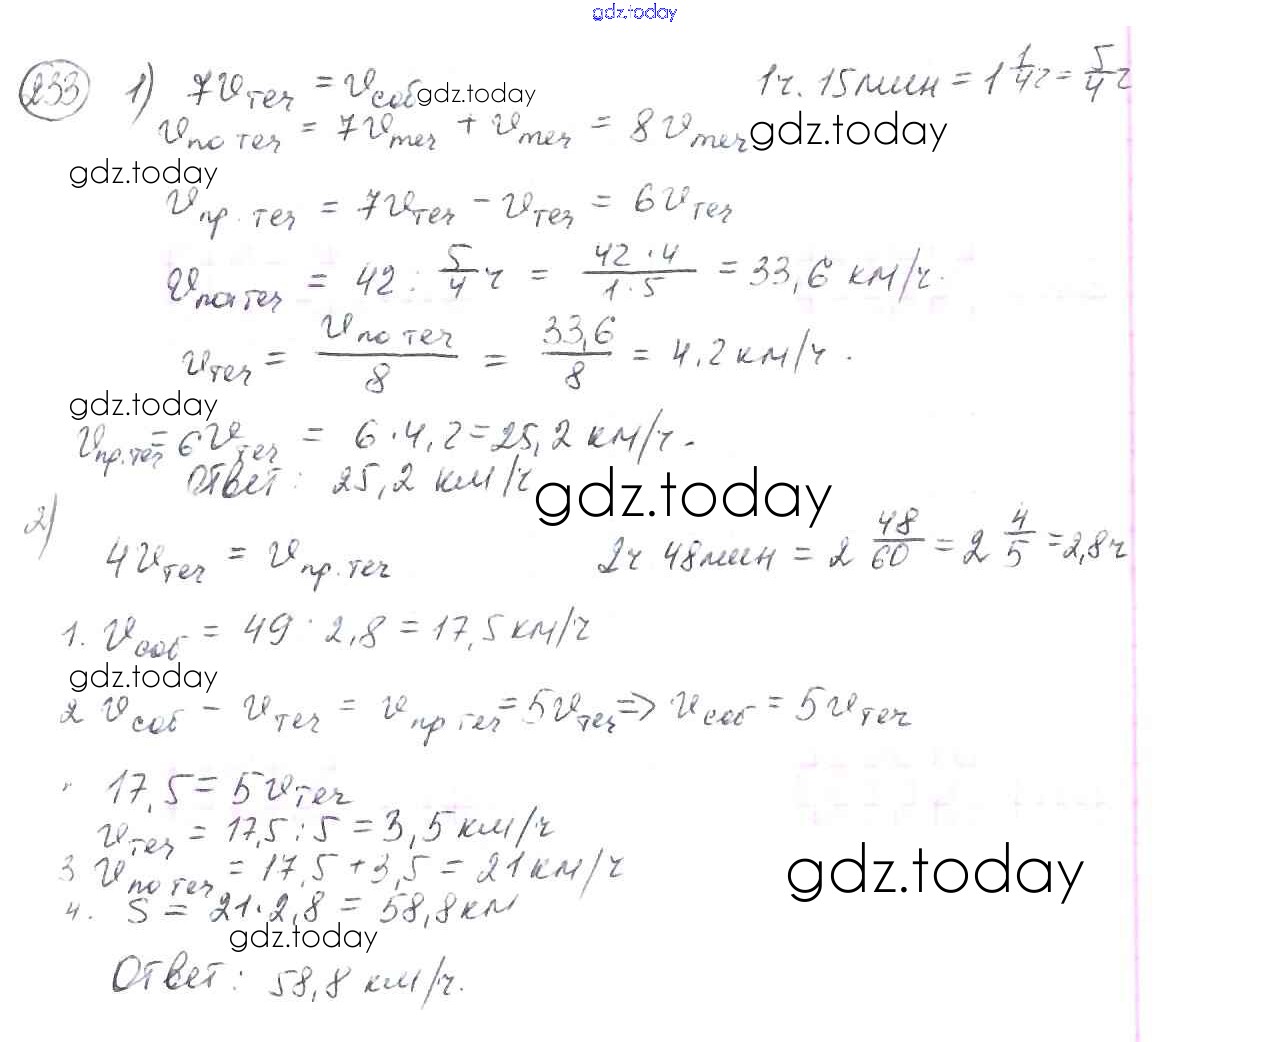 gdz.today
233 1) 7υтеч = υсоб gdz.today 1ч. 15мин = 1 1/4 ч = 5/4 ч
υпо теч = 7υтеч + υтеч = 8υтеч gdz.today
gdz.today
υпр. теч = 7υтеч - υтеч = 6υтеч
υпо теч = 42 : 5/4 ч = 42·4/1·5 = 33,6 км/ч.
υтеч = υпо теч/8 = 33,6/8 = 4,2 км/ч.
gdz.today
υпр.теч = 6υтеч = 6·4,2=25,2 км/ч.
Ответ: 25,2 км/ч gdz.today
2)
4υтеч = υпр.теч 2ч 48мин = 2 48/60 = 2 4/5 = 2,8ч
1. υсоб = 49 : 2,8 = 17,5 км/ч
gdz.today
2 υсоб - υтеч = υпр теч = 5υтеч => υсоб = 5υтеч
17,5 = 5υтеч
υтеч = 17,5 : 5 = 3,5 км/ч
3 υпо теч = 17,5 + 3,5 = 21 км/ч
gdz.today
4. S = 21·2,8 = 58,8 км
gdz.today
Ответ: 58,8 км/ч.